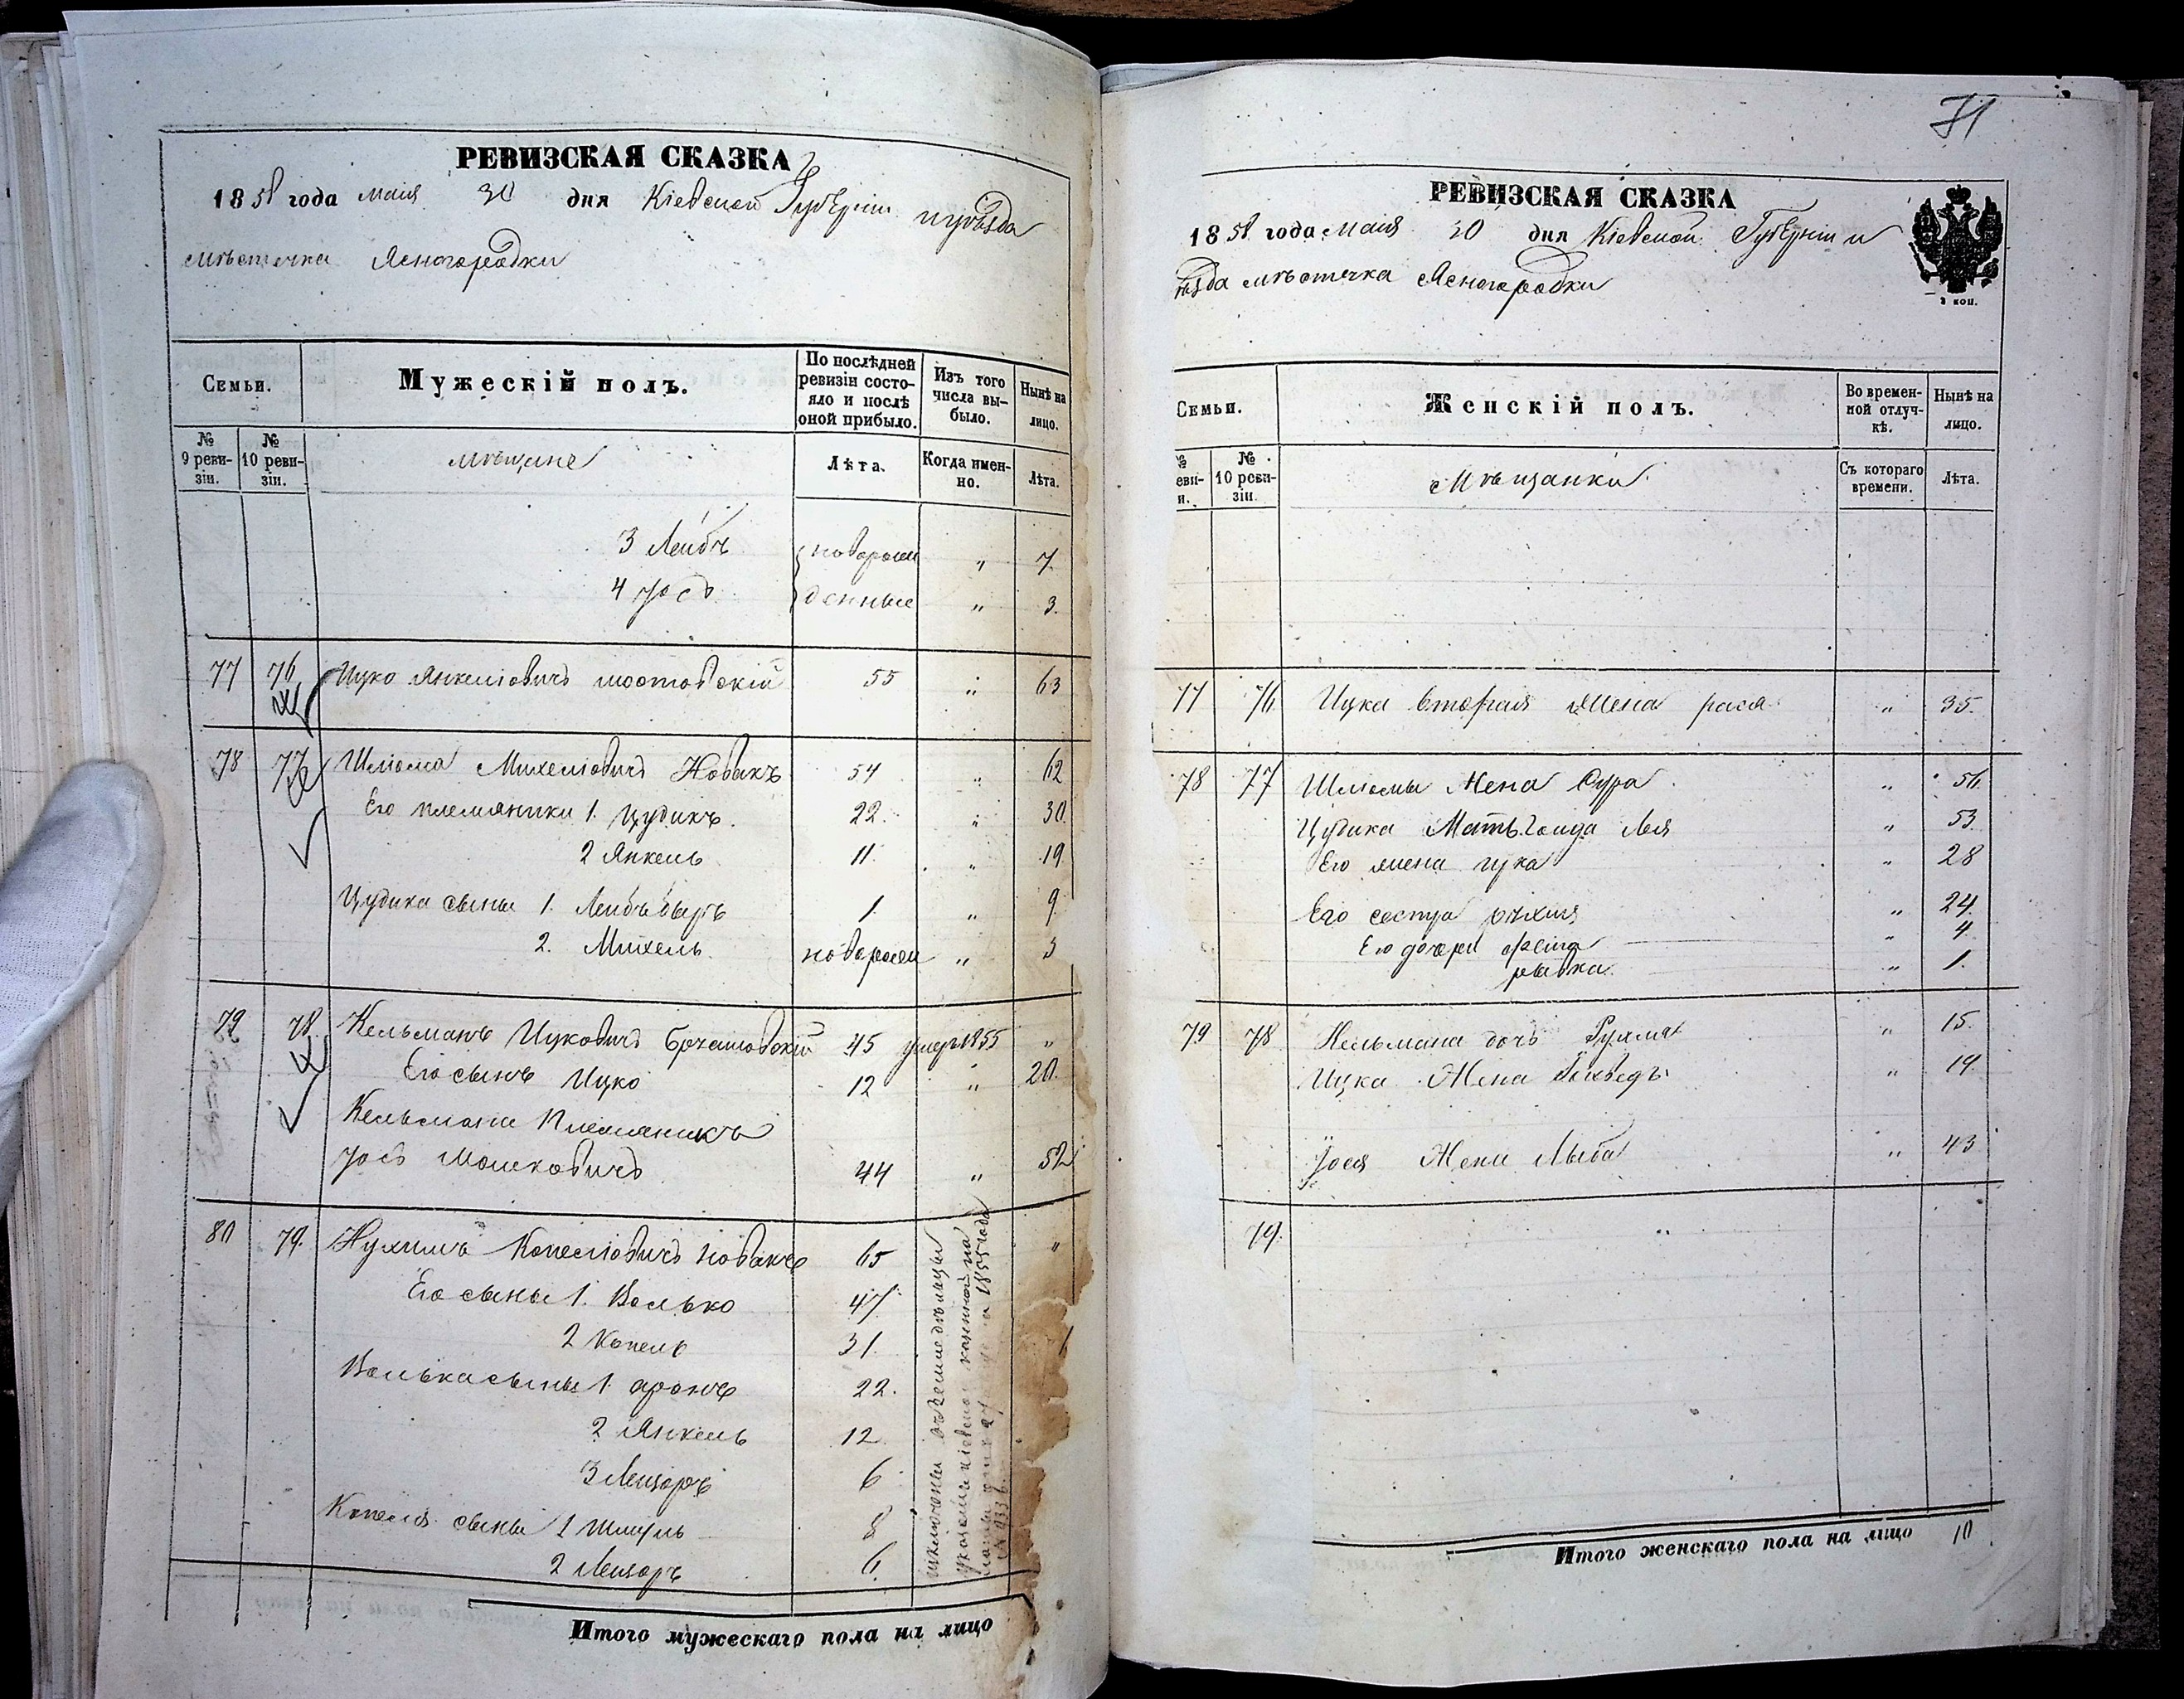 РЕВИЗСКАЯ СКАЗКА
1858 года маія 30 дня Кіевской Губерніи и уѣзда
мѣстечка Ясногородки
Семьи.
Мужескій полъ.
По послѣдней ревизіи состояло и послѣ оной прибыло.
Изъ того числа выбыло.
Нынѣ на лицо.
№ 9 ревизіи.
№ 10 ревизіи.
мѣщане
Лѣта.
Когда именно.
Лѣта.
3 Лейбъ новорож „ 7
4 Іосъ денные „ 3.
77 76 Ицко Янкеліовичъ 55 „ 63
78 77 Шліома Михеліовичъ Новакъ 54 „ 62
Его племяники 1. Цудикъ. 22. „ 30.
2 Янкель 11. „ 19.
Цудика сыны 1. Лейбъ Беръ 1. „ 9
2. Михель. новорож „ 3
79 78. Кельманъ Ицковичъ 45 умеръ 1855 „
Его сынъ Ицко 12 „ 20.
Кельмана Племяникъ
Іосъ Мошковичъ 44 „ 52
80 79. Нухимъ Копеліовичъ Новакъ 65 „
Его сыны 1. Волько 47
2 Копель 31.
Волька сыны 1. Аронъ 22.
2 Янкель 12
3 Лейзоръ 6
Копеля сыны 1 Шмуль 8
2 Лейзоръ 6.
Итого мужескаго пола на лицо
71
РЕВИЗСКАЯ СКАЗКА
1858 года маія 30 дня Кіевской Губерніи и
ѣзда мѣстечка Ясногородки
2 коп.
Семьи.
Женскій полъ.
Во временной отлучкѣ.
Нынѣ на лицо.
№ еви- и.
№ 10 ревизіи.
Мѣщанки
Съ котораго времени.
Лѣта.
77 76 Ицка вторая Жена рася „ 35.
78 77 Шліомы Жена Сура „ 56.
Цудика Мать Леа „ 53
Его жена „ 28
Его сестра „ 24.
Его дочери „ 4
рывка. „ 1.
79 78 Кельмана дочь Рухля „ 15.
Ицка Жена „ 19.
Іося Жена Лыба „ 43
79. „
Итого женскаго пола на лицо 10